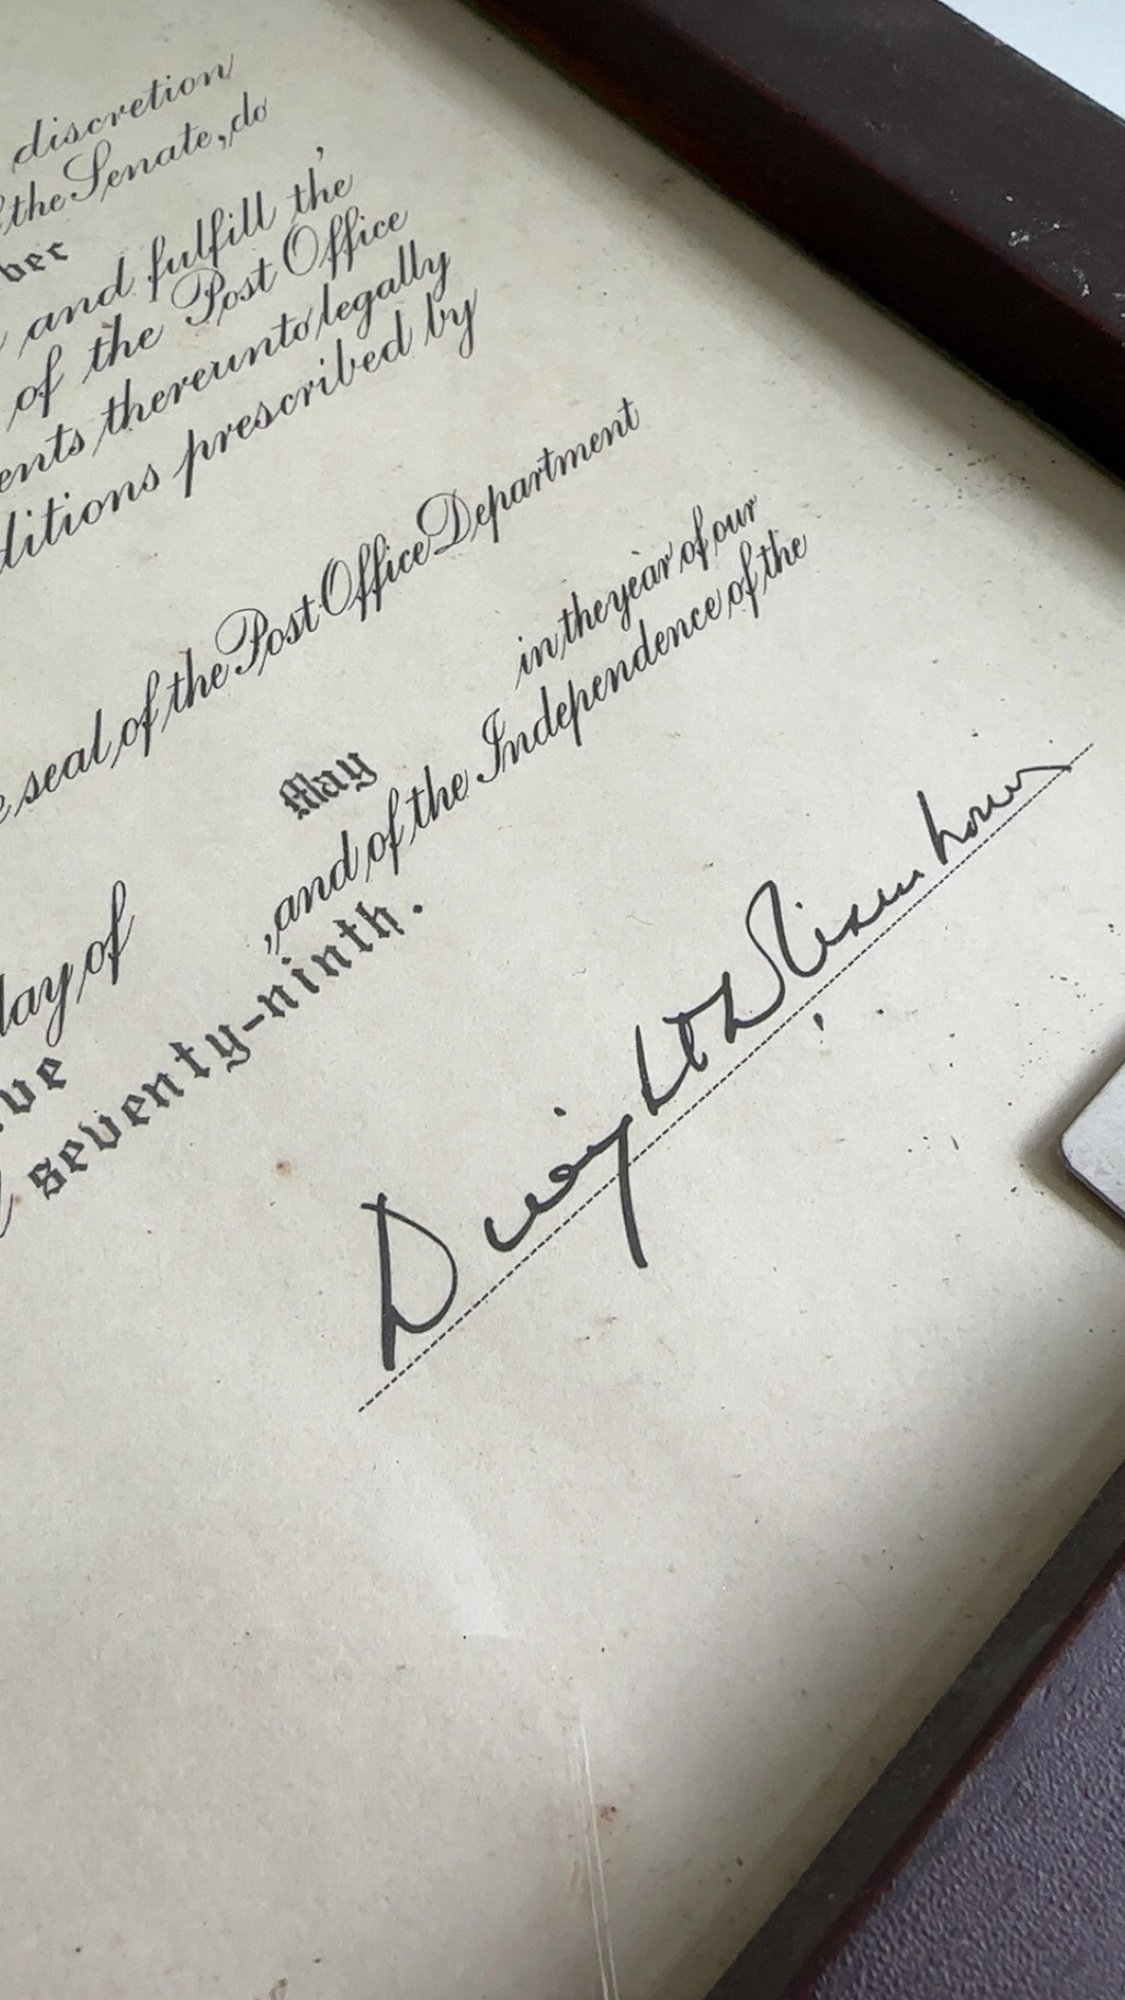 discretion
the Senate, do
and fulfill the
of the Post Office
thereunto legally
prescribed by
seal of the Post Office Department
day of May in the year of our
, and of the Independence of the
seventy-ninth.
Dwight D. Eisenhower